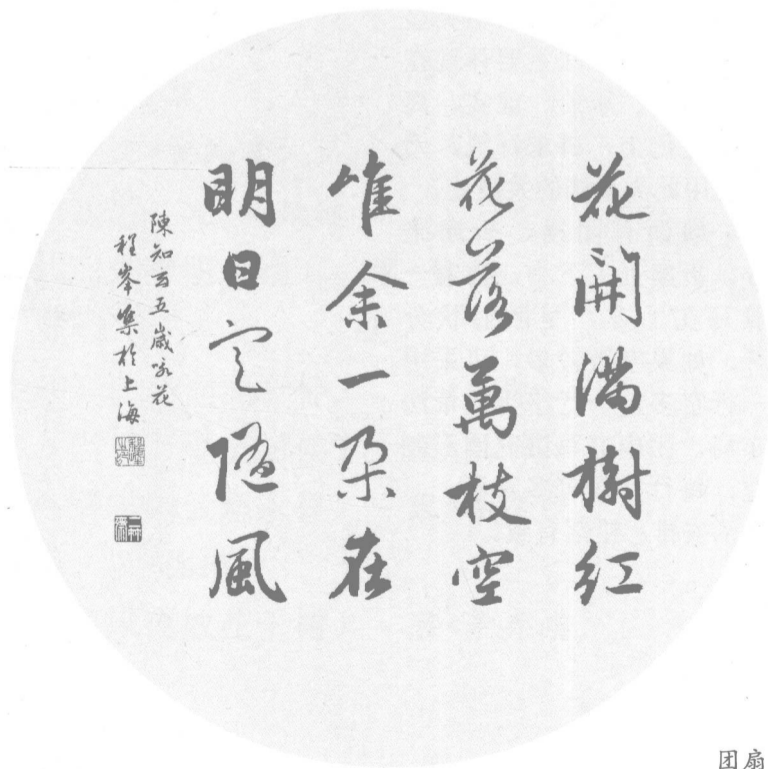 花開滿樹紅
花落萬枝空
唯余一朵在
明日定隨風
陳知玄五歲詠花
程峯集於上海
团扇